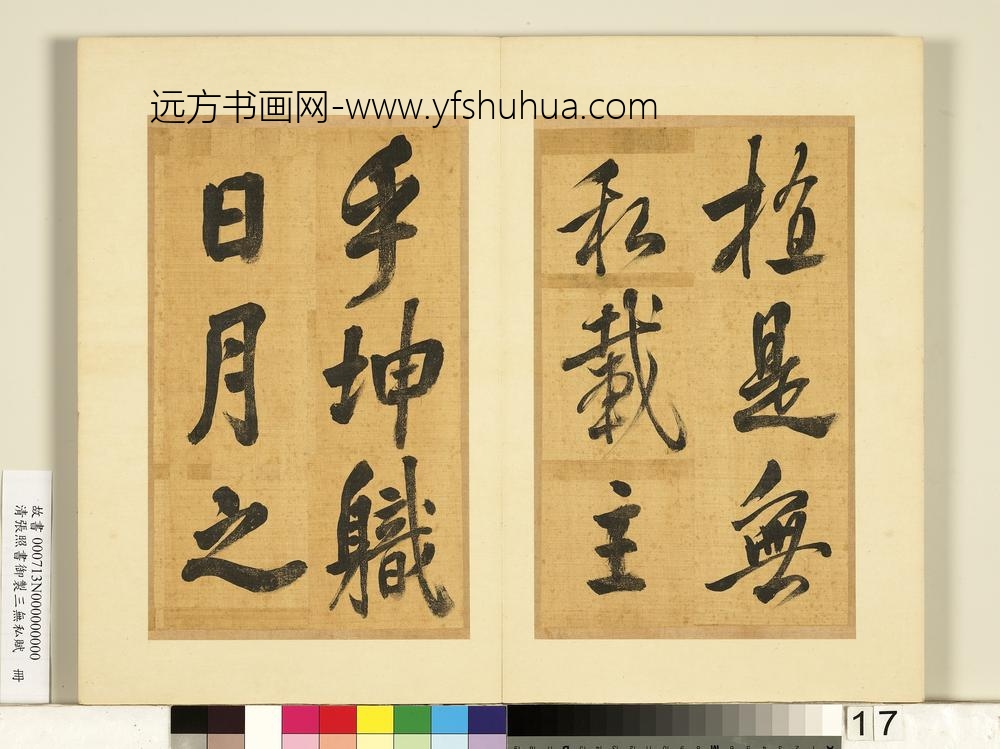 远方书画网-www.yfshuhua.com
植是無
私載主
乎坤職
日月之
故書 000713N000000000
清張照書御製三無私賦 冊
17